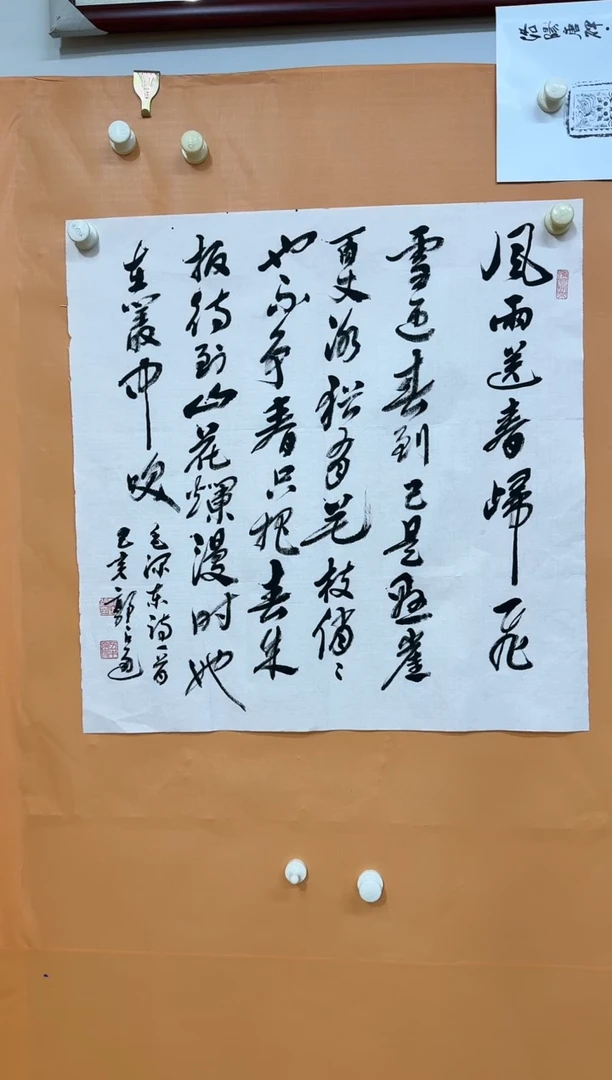 風雨送春歸飛
雪迎春到已是懸崖
百丈冰猶有花枝俏〻
也不争春只把春来
报待到山花爛漫时她
在叢中笑
毛泽东诗一首
己亥 郭
洛陽